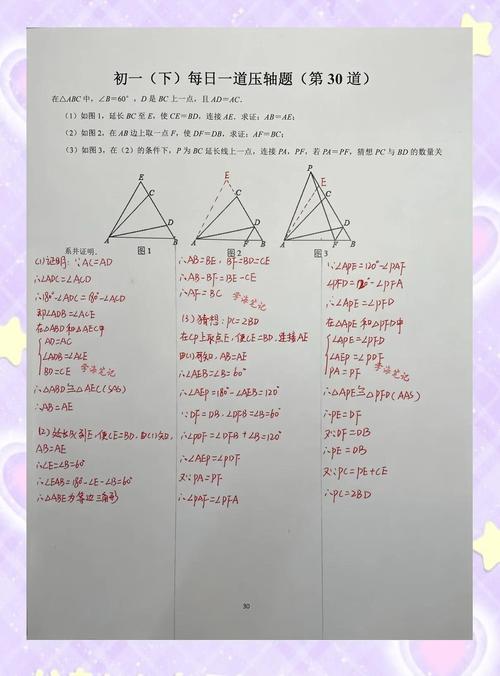 初一（下）每日一道压轴题（第 30 道）
在△ABC 中，∠B＝60°，D 是 BC 上一点，且 AD＝AC．
（1）如图 1，延长 BC 至 E，使 CE＝BD，连接 AE，求证：AB＝AE；
（2）如图 2，在 AB 边上取一点 F，使 DF＝DB，求证：AF＝BC；
（3）如图 3，在（2）的条件下，P 为 BC 延长线上一点，连接 PA，PF，若 PA＝PF，猜想 PC 与 BD 的数量关
E
C
D
A
B
图 1
E
C
D
A
F
B
图 2
P
E
C
D
A
F
B
图 3
系并证明．
(1)证明：∵AC=AD
∴∠ADC=∠ACD
∴180°-∠ADC=180°-∠ACD
即∠ADB=∠ACE
在△ABD和△AEC中
AD=AC
∠ADB=∠ACE
BD=CE
学海笔记
∴△ABD≌△AEC(SAS)
∴AB=AE
(2)延长BC到E,使CE=BD,由(1)知,
AB=AE
∴∠E=∠B=60°
∴∠EAB=180°-∠E-∠B=60°
∴△ABE为等边三角形
∴AB=BE,BF=BD=CE
∴AB-BF=BE-CE
∴AF=BC
学海笔记
(3)猜想：PC=2BD
在CP上取点E,使CE=BD,连接AE
由(1)可知,AB=AE
∴∠AEB=∠B=60°
∴∠AEP=180°-∠AEB=120°
∵DF=DB,∠DFB=∠B=60°
∴∠PDF=∠DFB+∠B=120°
∴∠AEP=∠PDF
又∵PA=PF
∴∠PAF=∠PFA
∵∠APE=120°-∠PAF
∠PFD=120°-∠PFA
∴∠APE=∠PFD
在△APE和△PFD中
∠APE=∠PFD
∠AEP=∠PDF
PA=PF
学海笔记
∴△APE≌△PFD(AAS)
∴PE=DF
又∵DF=DB
∴PE=DB
又∵PC=PE+CE
∴PC=2BD
30